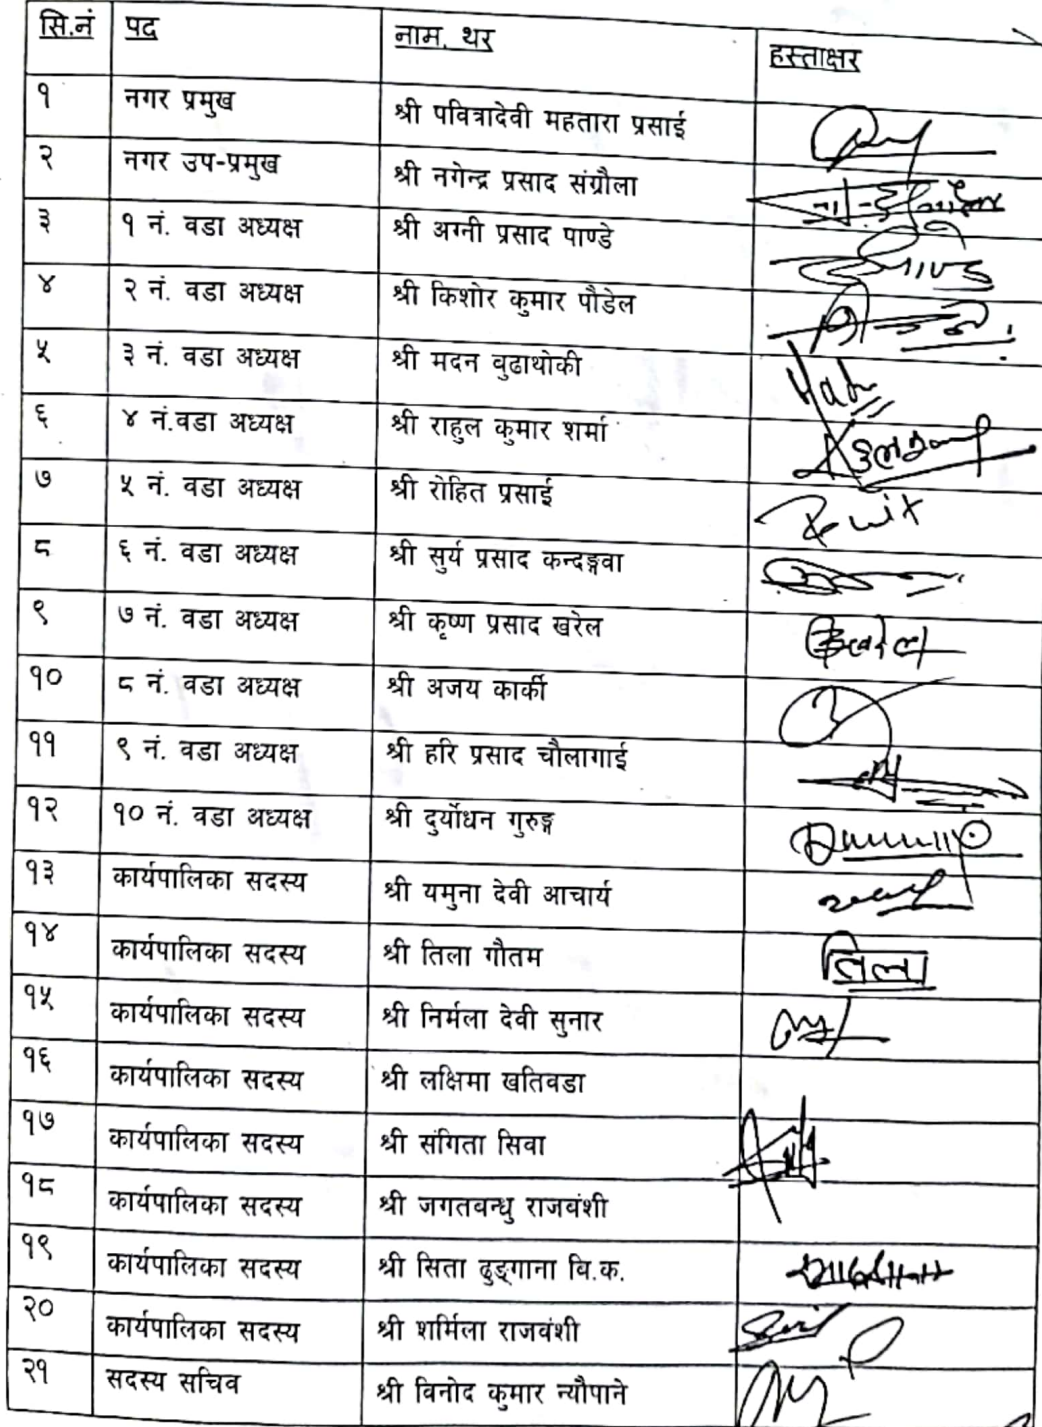 सि.नं पद नाम, थर हस्ताक्षर
१ नगर प्रमुख श्री पवित्रादेवी महतारा प्रसाई
२ नगर उप-प्रमुख श्री नगेन्द्र प्रसाद संग्रौला
३ १ नं. वडा अध्यक्ष श्री अग्नी प्रसाद पाण्डे
४ २ नं. वडा अध्यक्ष श्री किशोर कुमार पौडेल
५ ३ नं. वडा अध्यक्ष श्री मदन वुढाथोकी
६ ४ नं.वडा अध्यक्ष श्री राहुल कुमार शर्मा
७ ५ नं. वडा अध्यक्ष श्री रोहित प्रसाई
८ ६ नं. वडा अध्यक्ष श्री सुर्य प्रसाद कन्दङ्गवा
९ ७ नं. वडा अध्यक्ष श्री कृष्ण प्रसाद खरेल
१० ८ नं. वडा अध्यक्ष श्री अजय कार्की
११ ९ नं. वडा अध्यक्ष श्री हरि प्रसाद चौलागाई
१२ १० नं. वडा अध्यक्ष श्री दुर्योधन गुरुङ्ग
१३ कार्यपालिका सदस्य श्री यमुना देवी आचार्य
१४ कार्यपालिका सदस्य श्री तिला गौतम तिला
१५ कार्यपालिका सदस्य श्री निर्मला देवी सुनार
१६ कार्यपालिका सदस्य श्री लक्षिमा खतिवडा
१७ कार्यपालिका सदस्य श्री संगिता सिवा
१८ कार्यपालिका सदस्य श्री जगतवन्धु राजवंशी
१९ कार्यपालिका सदस्य श्री सिता ढुङ्गाना वि.क.
२० कार्यपालिका सदस्य श्री शर्मिला राजवंशी
२१ सदस्य सचिव श्री विनोद कुमार न्यौपाने